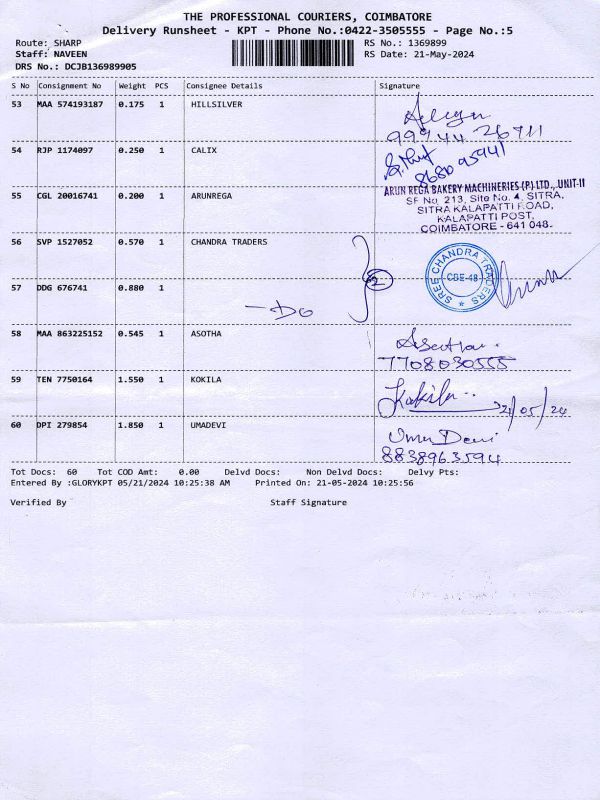 THE PROFESSIONAL COURIERS, COIMBATORE
Delivery Runsheet - KPT - Phone No.:0422-3505555 - Page No.:5
Route: SHARP RS No.: 1369899
Staff: NAVEEN RS Date: 21-May-2024
DRS No.: DCJB136989905
S No Consignment No Weight PCS Consignee Details Signature
53 MAA 574193187 0.175 1 HILLSILVER
99944 26711
54 RJP 1174097 0.250 1 CALIX
8680 95941
55 CGL 20016741 0.200 1 ARUNREGA
ARUN REGA BAKERY MACHINERIES (P) LTD., UNIT-II
SF No. 213, Site No. 4, SITRA,
SITRA KALAPATTI ROAD,
KALAPATTI POST,
COIMBATORE - 641 048.
56 SVP 1527052 0.570 1 CHANDRA TRADERS
2
SREE CHANDRA TRADERS
CBE-48
57 DDG 676741 0.880 1
- DG
58 MAA 863225152 0.545 1 ASOTHA
7708030555
59 TEN 7750164 1.550 1 KOKILA
Kokila 21/05/24
60 DPI 279854 1.850 1 UMADEVI
Uma Devi
8838963594
Tot Docs: 60 Tot COD Amt: 0.00 Delvd Docs: Non Delvd Docs: Delvy Pts:
Entered By :GLORYKPT 05/21/2024 10:25:38 AM Printed On: 21-05-2024 10:25:56
Verified By Staff Signature